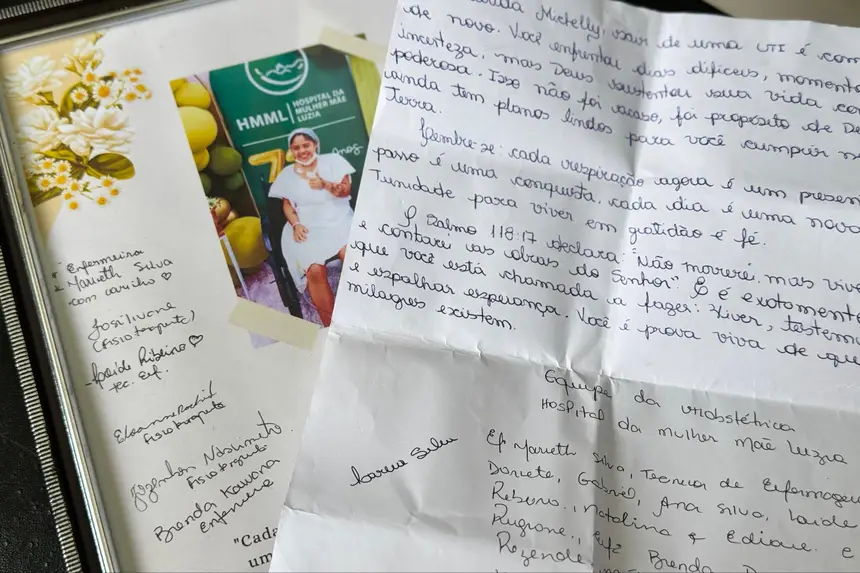 Michelly, sair de uma UTI é com
de novo. Você enfrentou dias difíceis, moment
incerteza, mas Deus sustentou sua vida co
poderosa. Isso não foi acaso, foi propósito de De
ainda tem planos lindos para você cumprir n
Terra.
Lembre-se: cada respiração agora é um presen
passo é uma conquista, cada dia é uma nova
tunidade para viver em gratidão e fé.
O Salmo 118:17 declara: "Não morrerei, mas vive
e contarei as obras do Senhor". E é exatamente
que você está chamada a fazer: Viver, testem
e espalhar esperança. Você é prova viva de que
milagres existem.
Equipe da UTI obstétrica
Hospital da mulher mãe luzia
Enf Marieth Silva, Tecnica de Enfermagem
Dorivete, Gabriel, Ana Silva, Laide
Ribeiro, Natalina & Ediane. e
Enfª Brenda
Rezende
Silva
HMML
HOSPITAL DA
MULHER MÃE
LUZIA
7
anos
Enfermeira
Marieth Silva
com carinho
Josilvane
(Fisioterapeuta)
Laide Ribeiro
Tec. Enf.
Fisioterapeuta
Nascimento
Fisioterapeuta
Brenda Kawana
Enfermeira
"Cada
um